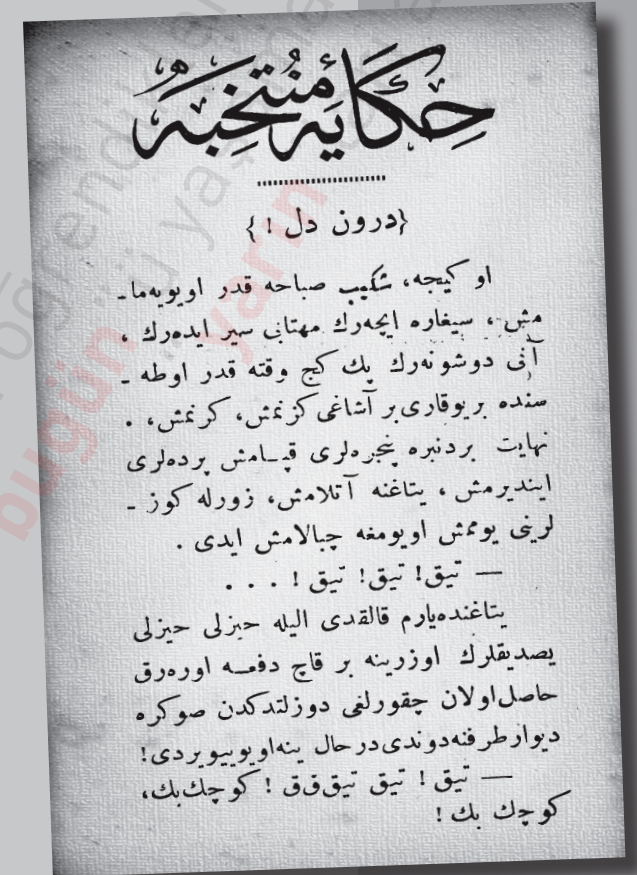 حكايهٔ منتخبه
{درون دل !}
او كيجه، شكيب صباحه قدر اويويه‌ما-
مش، سيغاره ايچه‌رك مهتابى سير ايده‌رك ،
آنى دوشونه‌رك پك كج وقته قدر اوطه -
سنده بريوقارى بر آشاغى كزنمش، كرنمش، .
نهايت بردنبره پنجره‌لرى قپـامش پرده‌لرى
اينديرمش ، يتاغنه آتلامش، زورله كوز -
لرينى يوممش اويومغه چبالامش ايدى .
— تيق! تيق! تيق ! . . .
يتاغنده يارم قالقدى اليله حيزلى حيزلى
يصديقلرك اوزرينه بر قاچ دفعـه اوره‌رق
حاصل اولان چقورلغى دوزلتدكدن صوكره
ديوار طرفنه دوندى در حال ينه اويوييويردى!
— تيق ! تيق تيق‌ق‌ق ! كوچك بك،
كوچك بك !
bugün
yarın
öğrendikler
ü yaşama